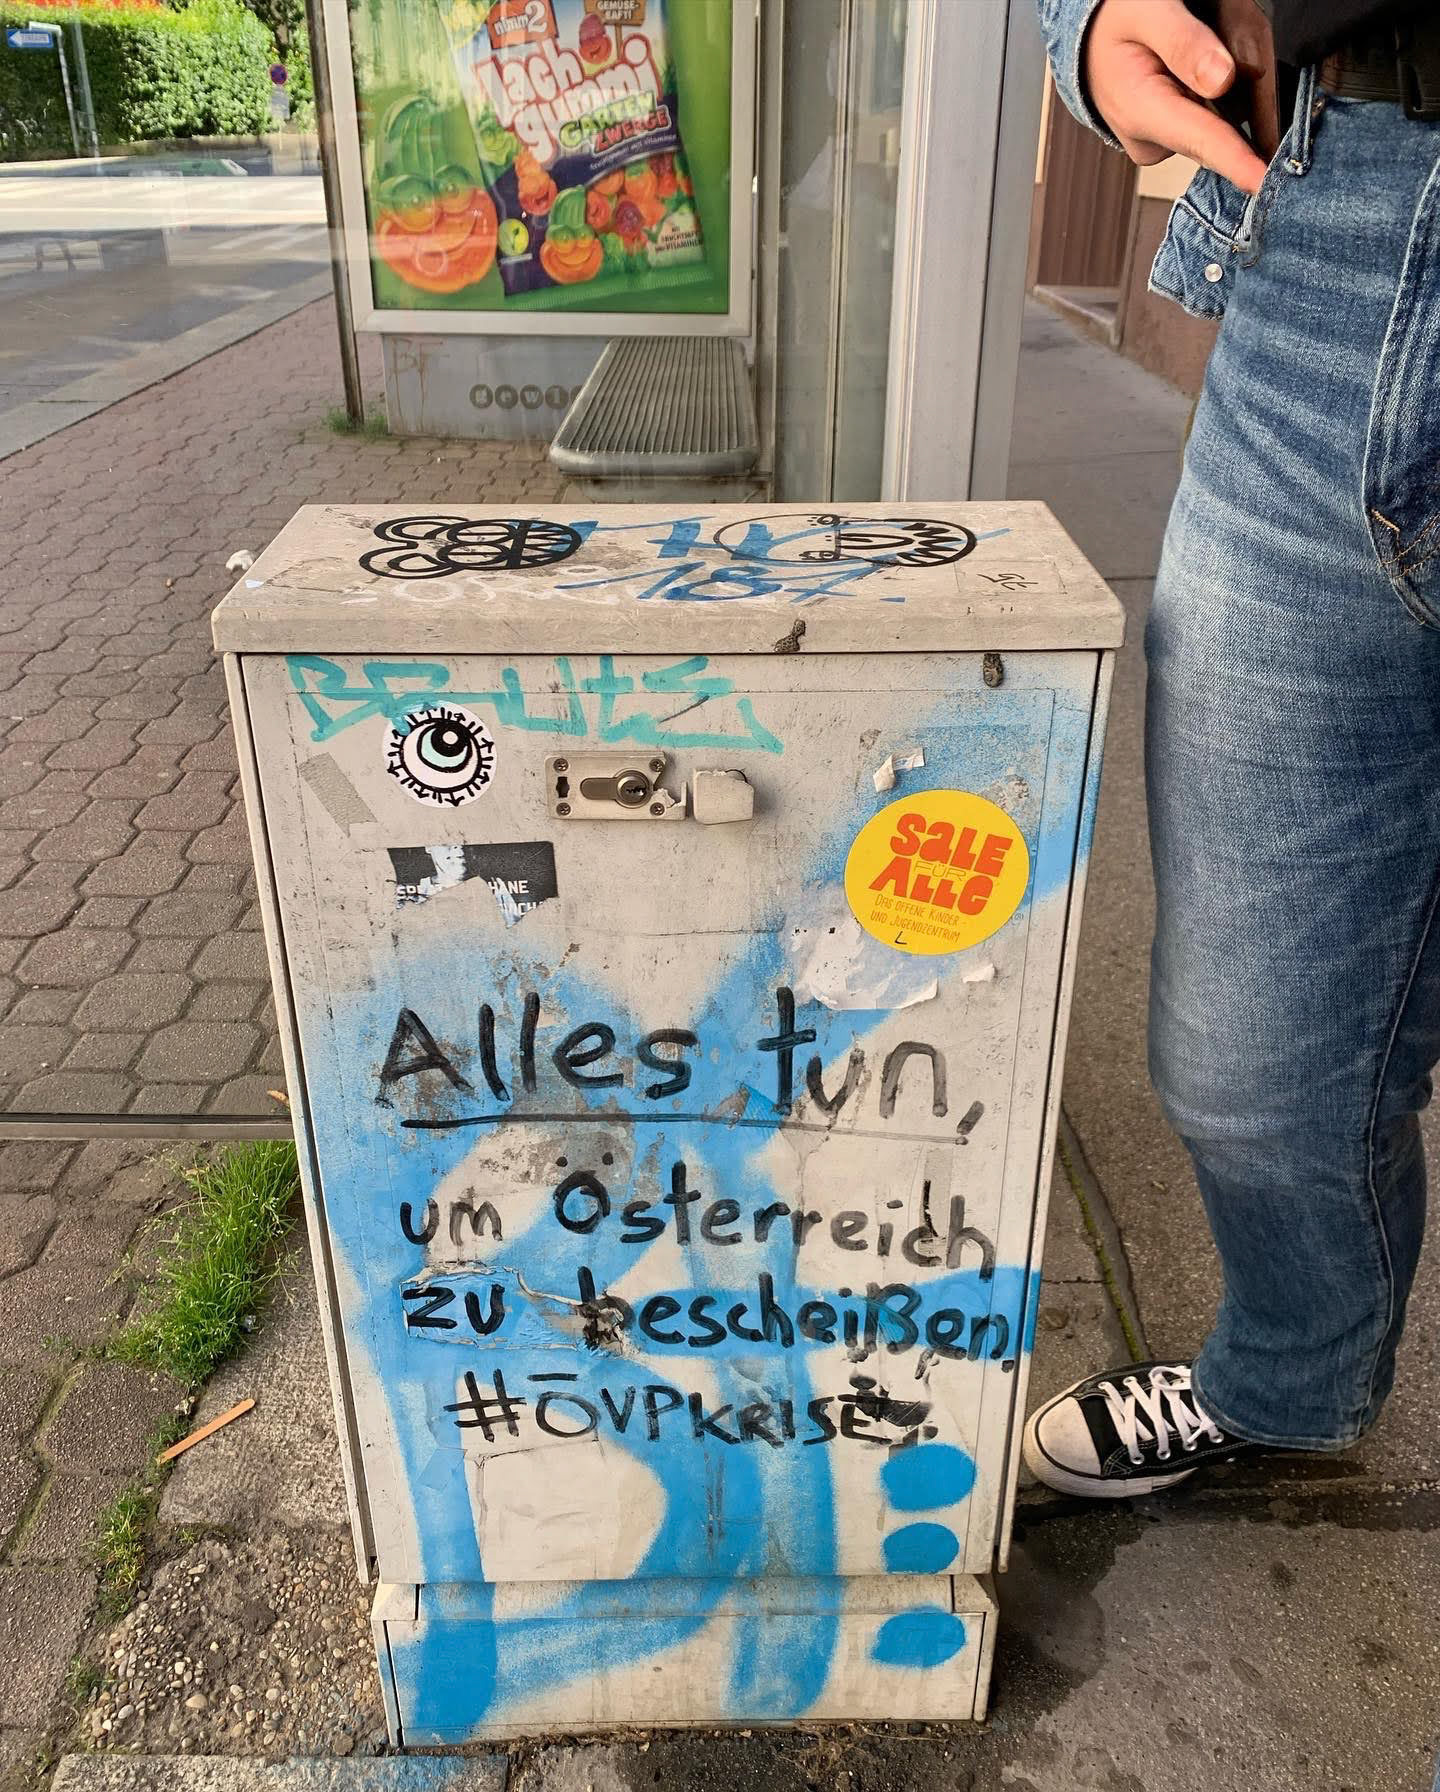 nimm2
GEMÜSE-
SAFT!
Lach
gummi
GARTEN
ZWERGE
187
SALE
FÜR
ALLE
DAS OFFENE KINDER-
UND JUGENDZENTRUM
Alles tun,
um Österreich
zu bescheißen.
#ÖVPKRISE